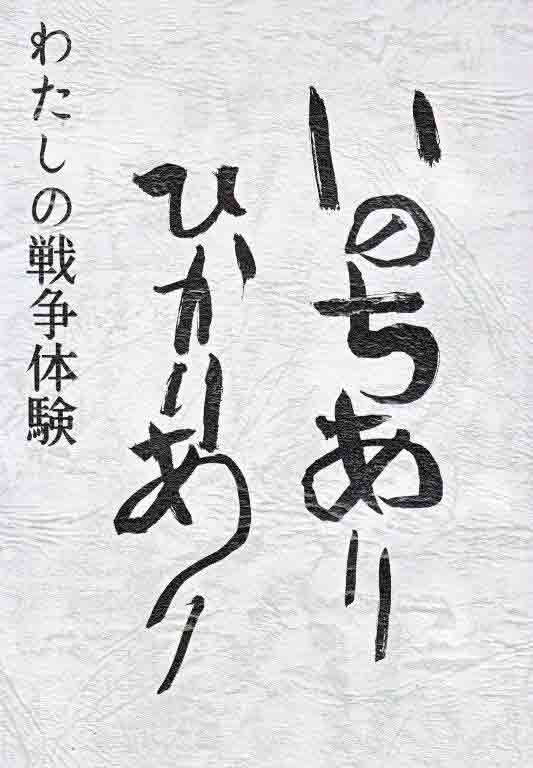 いのちあり
ひかりあり
わたしの戦争体験